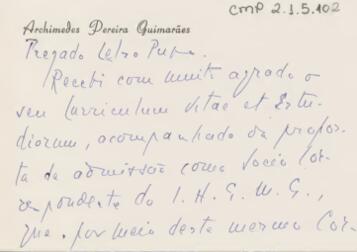 CMP 2.1.5.102
Archimedes Pereira Guimarães
Prezado Celso
Recebi com muito agrado o
seu Curriculum Vitae et Estu-
diorum, acompanhado da propos-
ta de admissão como sócio cor-
respondente do I. H. G. M. G.,
que, por meio desta mesma Cor-